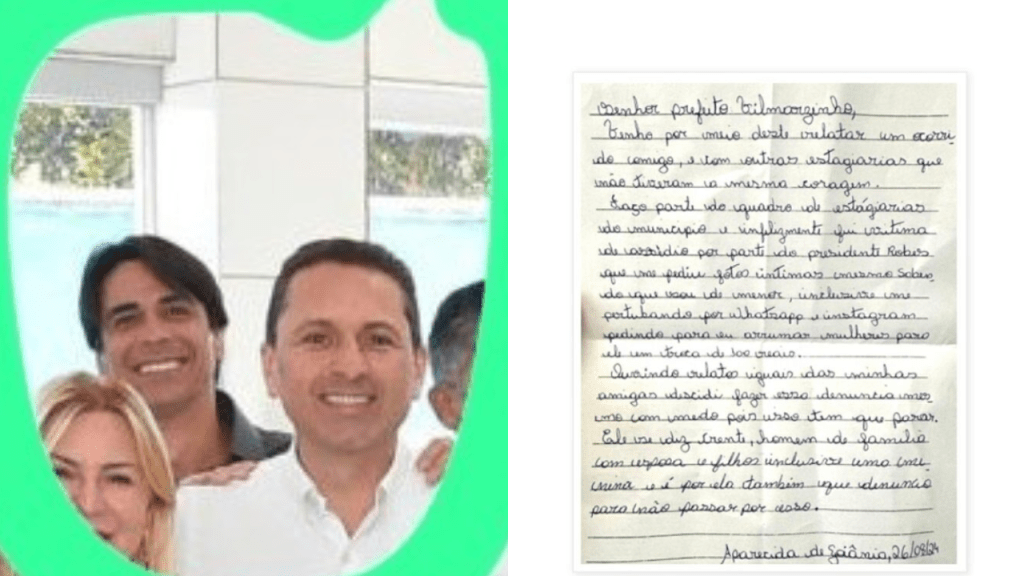 Senhor prefeito Vilmarzinho,
Venho por meio deste relatar um ocorri-
do comigo, e com outras estagiarias que
não tiveram a mesma coragem.
Faço parte do quadro de estágiarias
do municipio e infelizmente fui vitima
de assédio por parte do presidente Robes
que me pediu fotos íntimas mesmo Saben-
do que sou de menor, inclusive me
portubando por whatsapp e instagram
pedindo para eu arrumar mulheres para
ele em troca de 500 reais.
Ouvindo relatos iguais das minhas
amigas discidi fazer essa denuncia mes-
mo com medo pois isso tem que parar.
Ele se diz crente, homem de familia
com esposa e filhos inclusive uma me-
nina e é por ela também que denuncio
para não passar por isso.
Aparecida de Goiânia, 26/08/24